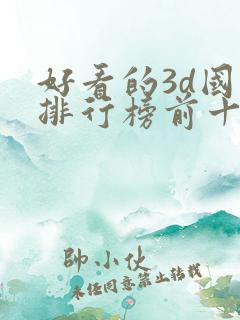 好看的3d國
排行榜前十
帥小伙
未经同意禁止转载